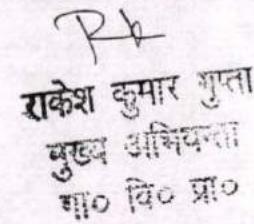 राकेश कुमार गुप्ता
मुख्य अभियन्ता
गा० वि० प्रा०